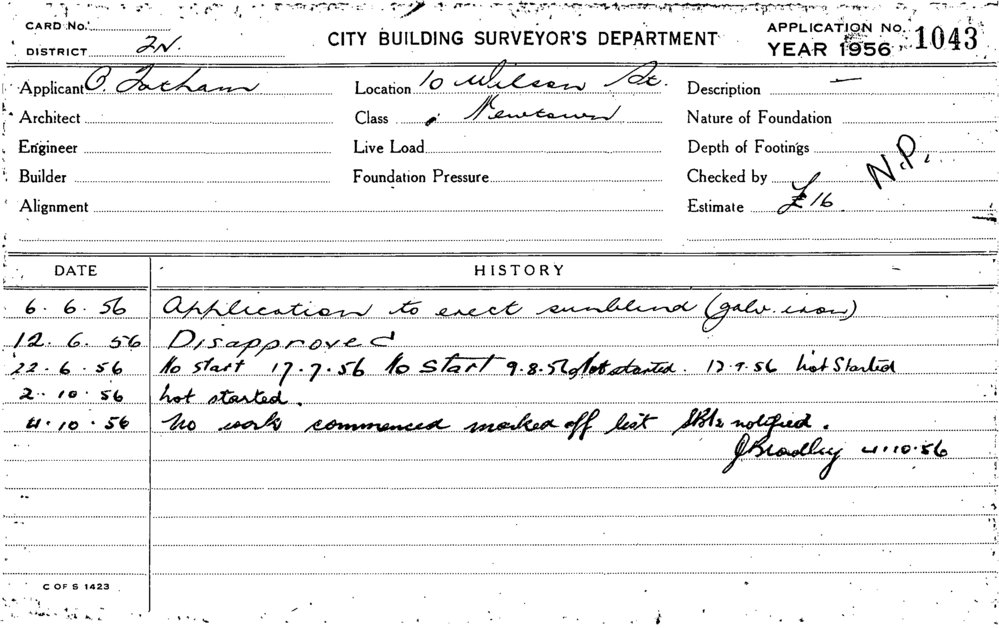 CARD NO.
DISTRICT 2N.
CITY BUILDING SURVEYOR'S DEPARTMENT
APPLICATION NO. 1043
YEAR 1956
Applicant Location 10 Wilson St. Description –
Architect Class Newtown Nature of Foundation
Engineer Live Load Depth of Footings
Builder Foundation Pressure Checked by N.P.
Alignment Estimate £16.
DATE HISTORY
6. 6. 56 Application to erect sunblind (galv. iron)
12. 6. 56 Disapproved
22. 6. 56 No start 17.7.56 No Start 9.8.56 Not started. 17.9.56 Not Started
2. 10. 56 Not started.
4. 10. 56 No work commenced marked off list notified.
JBradley 4.10.56
C OF S 1423